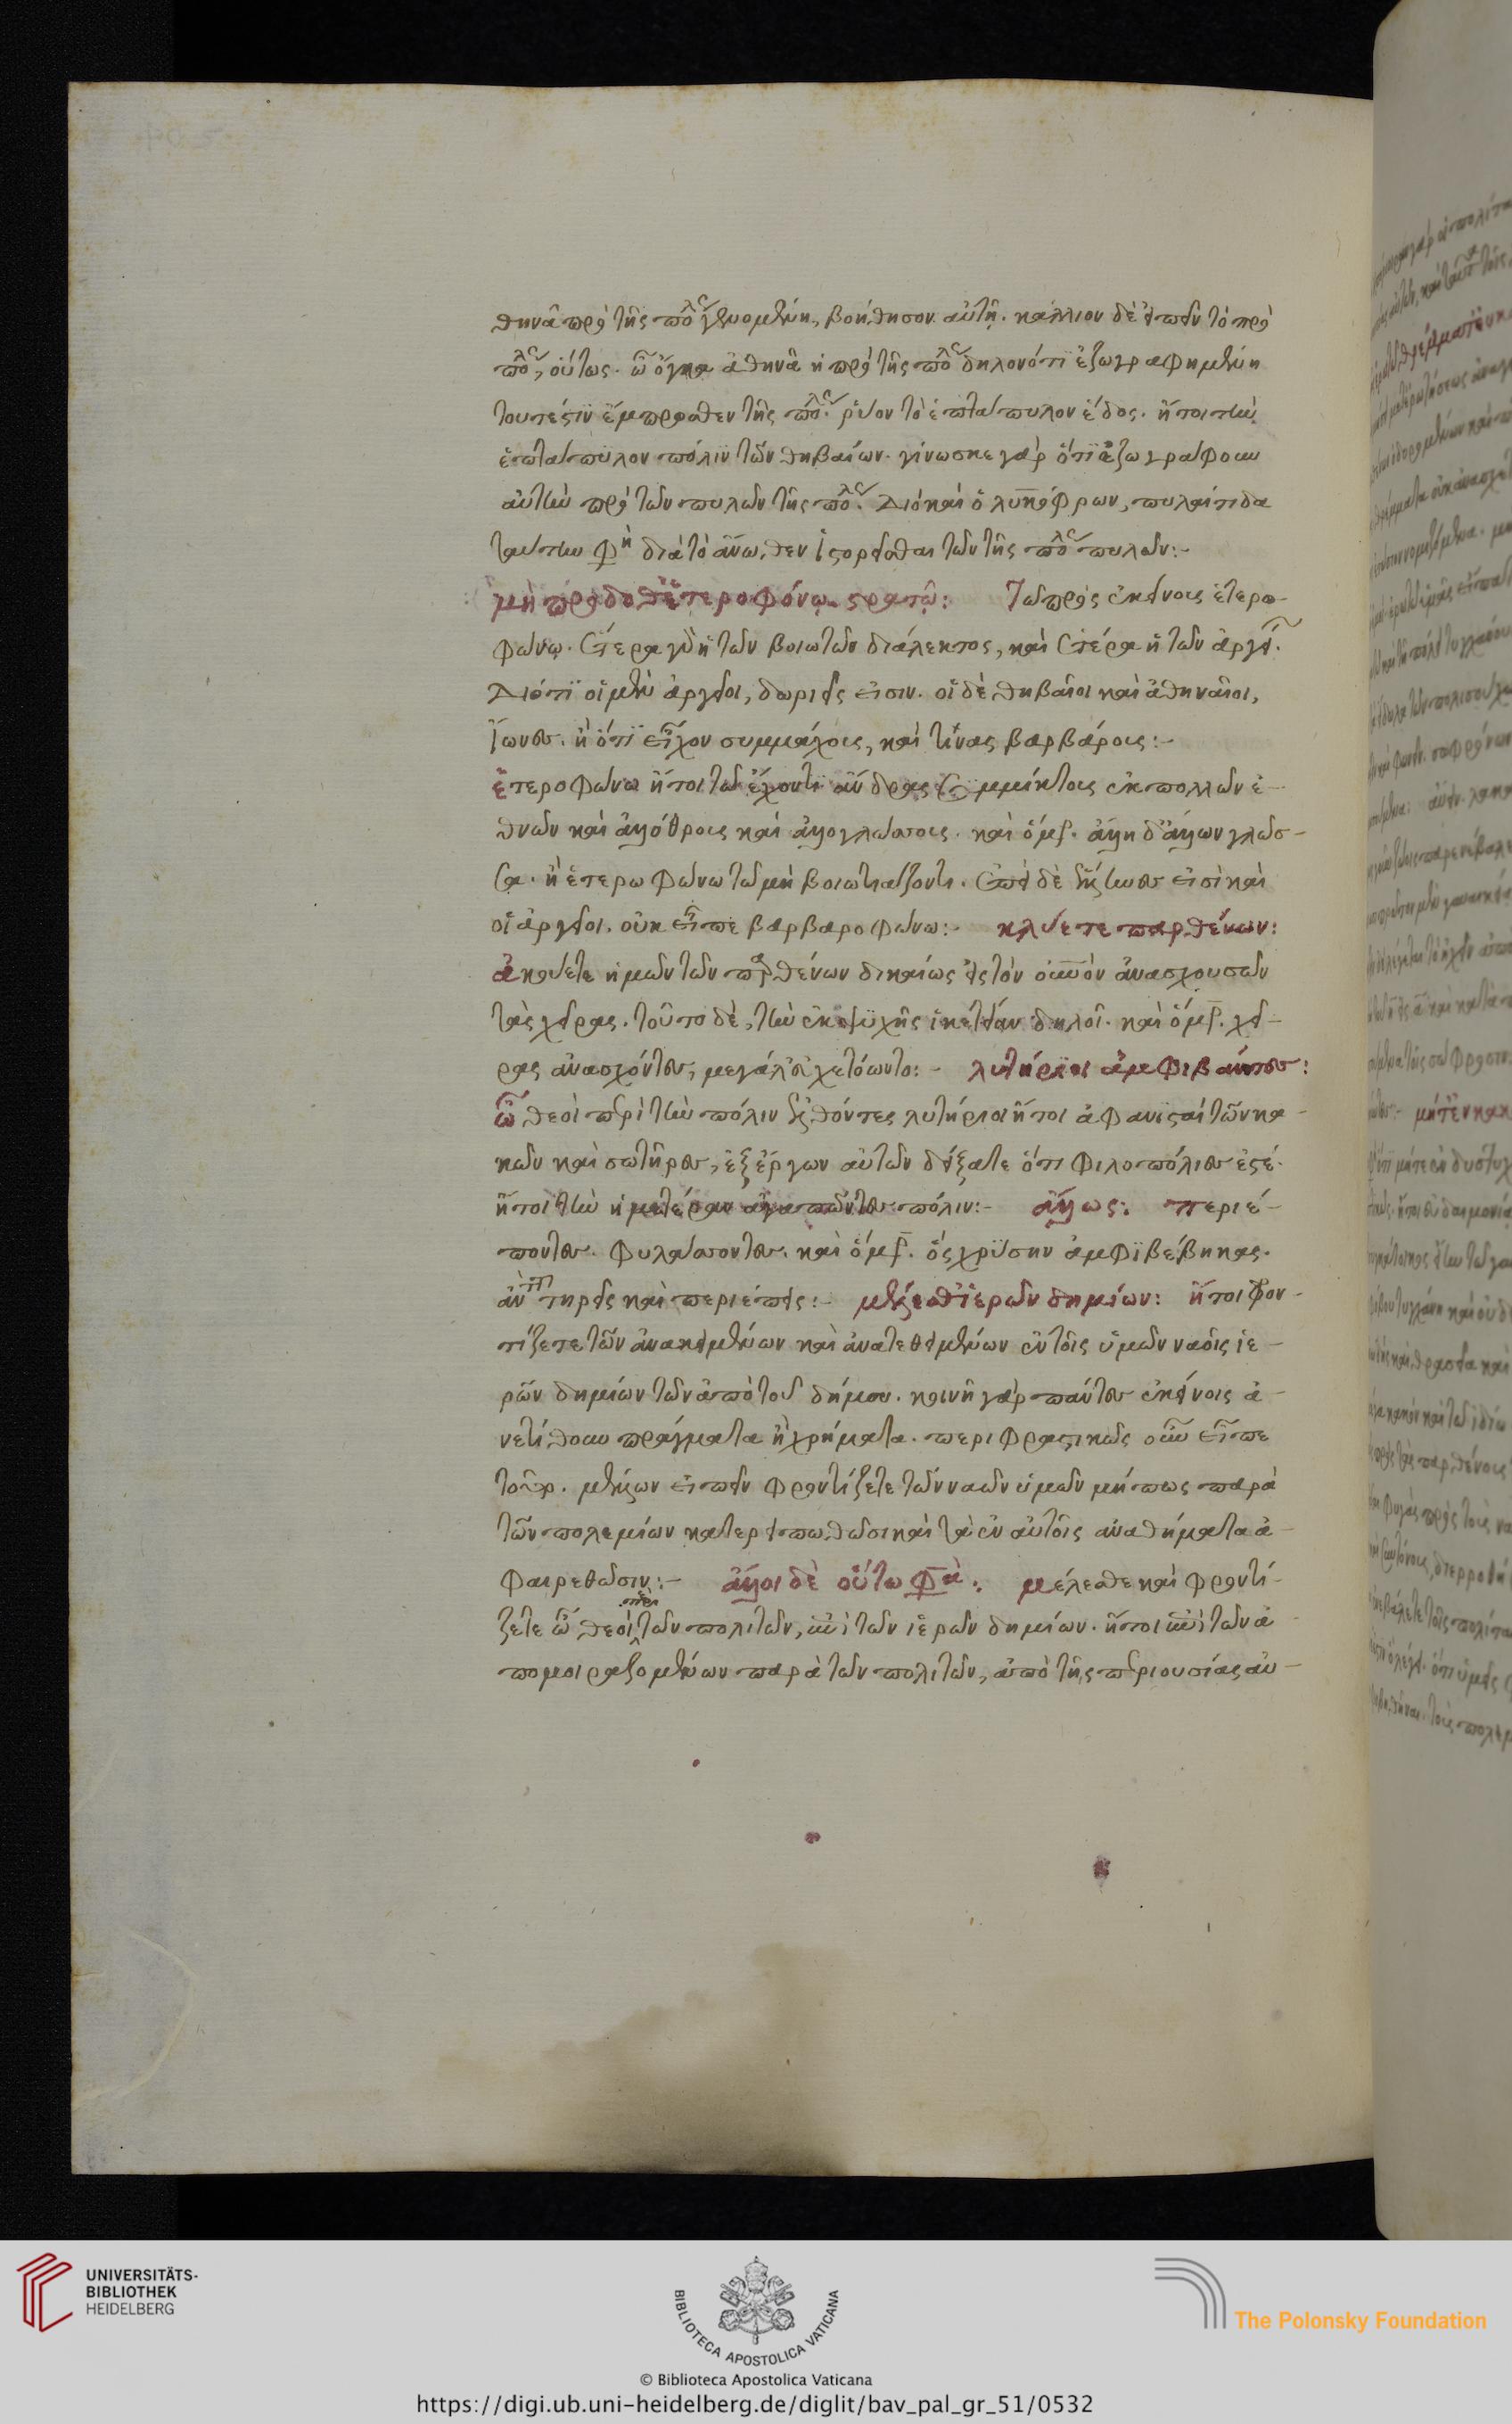 θηνᾶ πρὸ τῆς πόλεως γενομένη, βοήθησον αὐτῇ. κάλλιον δὲ εἰπεῖν τὸ πρὸ
πόλεως, οὕτως. ὦ ὄγκα ἀθηνᾶ ἡ πρὸ τῆς πόλεως δηλονότι ἐζωγραφημένη
τουτέστιν ἔμπροσθεν τῆς πόλεως. ῥύου τὸ ἑπτάπυλον ἕδος. ἤτοι τὴν
ἑπτάπυλον πόλιν τῶν θηβαίων. γίνωσκε γὰρ ὅτι ἐζωγράφουν
αὐτὴν πρὸ τῶν πυλῶν τῆς πόλεως. Διὸ καὶ ὁ λυκόφρων, πυλαίτιδα
ταύτην φη διὰ τὸ ἄνωθεν ἱστορεῖσθαι τῶν τῆς πόλεως πυλῶν:-
μὴ προδῶθ' ἑτεροφώνῳ στρατῷ: Τῷ πρὸς ἐκείνους ἑτερο-
φώνῳ. ἑτέρα γὰρ ἡ τῶν βοιωτῶν διάλεκτος, καὶ ἑτέρα ἡ τῶν ἀργείων.
Διότι οἱ μὲν ἀργεῖοι, δωριεῖς εἰσιν. οἱ δὲ θηβαῖοι καὶ ἀθηναῖοι,
ἴωνες. ἢ ὅτι εἶχον συμμάχους, καὶ τινὰς βαρβάρους:-
ἑτεροφώνω ἤτοι τῷ ἔχοντι ἄνδρας συμμίκτους ἐκ πολλῶν ἐ-
θνῶν καὶ ἀλλοθρους καὶ ἀλλογλώσσους. καὶ ὅμηρος. ἄλλη δ' ἄλλων γλῶσ-
σα. ἢ ἑτεροφώνω τῷ μὴ βοιωτιάζοντι. ἐπεὶ δὲ ἕλληνες εἰσὶ καὶ
οἱ ἀργεῖοι. οὐκ εἶπε βαρβαροφώνω:- κλύετε παρθένων:
ἀκούετε ἡμῶν τῶν παρθένων δικαίως εἰς τὸν οὐρανὸν ἀνασχουσῶν
τὰς χεῖρας. τοῦτο δὲ, τὴν ἐκ ψυχῆς ἱκετείαν δηλοῖ. καὶ ὅμηρος. χεῖ-
ρας ἀνασχόντες, μεγάλ' εὐχετόωντο:- λυτήριοι ἀμφιβάντες:
ὦ θεοὶ περὶ τὴν πόλιν ἐλθόντες λυτήριοι ἤτοι ἀφανισταὶ τῶν κα-
κῶν καὶ σωτῆρες, ἐξ ἔργων αὐτῶν δείξατε ὅτι φιλοπόλιες ἐστέ.
ἤτοι τὴν ἡμετέραν ἀγαπῶντες πόλιν:- ἄλλως: περιέ-
ποντες. φυλάσσοντες. καὶ ὅμηρος. ὃς χρύσην ἀμφιβέβηκας.
ἀντὶ τοῦ τηρεῖς καὶ περιέπεις:- μέλεσθ' ἱερῶν δημίων: ἤτοι φρον-
τίζετε τῶν ἀνακειμένων καὶ ἀνατεθειμένων ἐν τοῖς ὑμῶν ναοῖς ἱε-
ρῶν δημίων τῶν ἀπὸ τοῦ δήμου. κοινῇ γὰρ πάντες ἐκείνοις ἀ-
νετίθουν πράγματα ἢ χρήματα. περιφραστικῶς οὖν εἶπε
τοῦτο. μέλλων εἰπεῖν φροντίζετε τῶν ναῶν ὑμῶν μήπως παρὰ
τῶν πολεμίων κατερειπωθῶσι καὶ τὰ ἐν αὐτοῖς ἀναθήματα ἀ-
φαιρεθῶσιν:- ἄλλοι δὲ οὕτω φασὶ: μέλεσθε καὶ φροντί-
ζετε ὦ θεοὶ περὶ τῶν πολιτῶν, ἐπὶ τῶν ἱερῶν δημίων. ἤτοι ἐπὶ τῶν ἀ-
πομοιραζομένων παρὰ τῶν πολιτῶν, ἀπὸ τῆς περιουσίας αὐ-
UNIVERSITÄTS-
BIBLIOTHEK
HEIDELBERG
BIBLIOTECA APOSTOLICA VATICANA
The Polonsky Foundation
© Biblioteca Apostolica Vaticana
https://digi.ub.uni-heidelberg.de/diglit/bav_pal_gr_51/0532